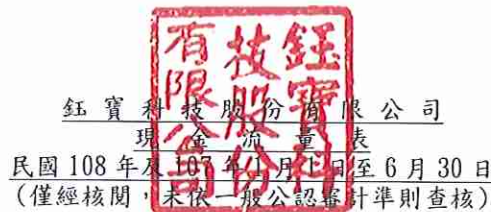 鈺寶科技股份有限公司
現金流量表
民國108年及107年1月1日至6月30日
(僅經核閱，未依一般公認審計準則查核)
鈺寶科
技股份
有限公司